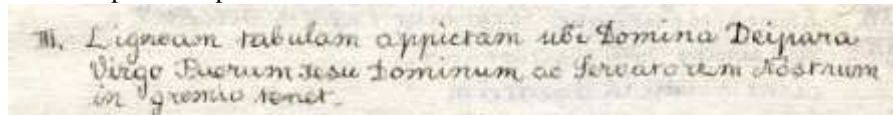 III. Ligneam tabulam appictam ubi Domina Deipara
Virgo Puerum Jesu Dominum ac Servatorem Nostrum
in gremio tenet.